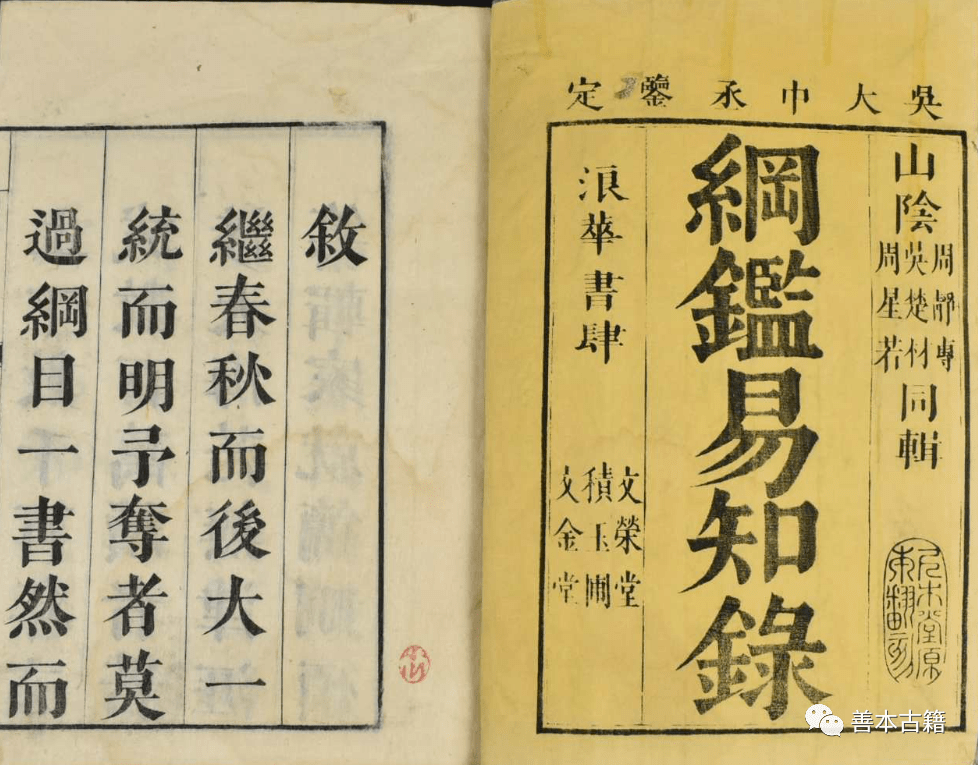 吳大中丞鑒定
山陰
周靜專
吳楚材
周星若
同輯
綱鑑易知錄
浪華書肆
文榮堂
積玉圃
文金堂
尺木堂原
敘
繼春秋而後大一
統而明予奪者莫
過綱目一書然而
善本古籍